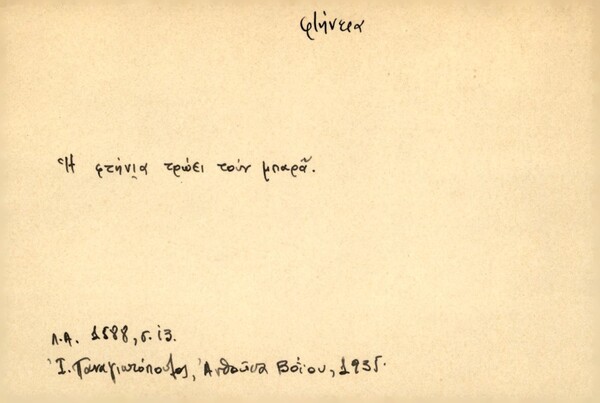 φτήνεια
Ἡ φτήνια τρώει τοὺν μπαρᾶ.
Λ.Α. 1588, σ. 13.
Ἰ. Παναγιωτόπουλος, Ἀνθοῦσα Βοΐου, 1935.